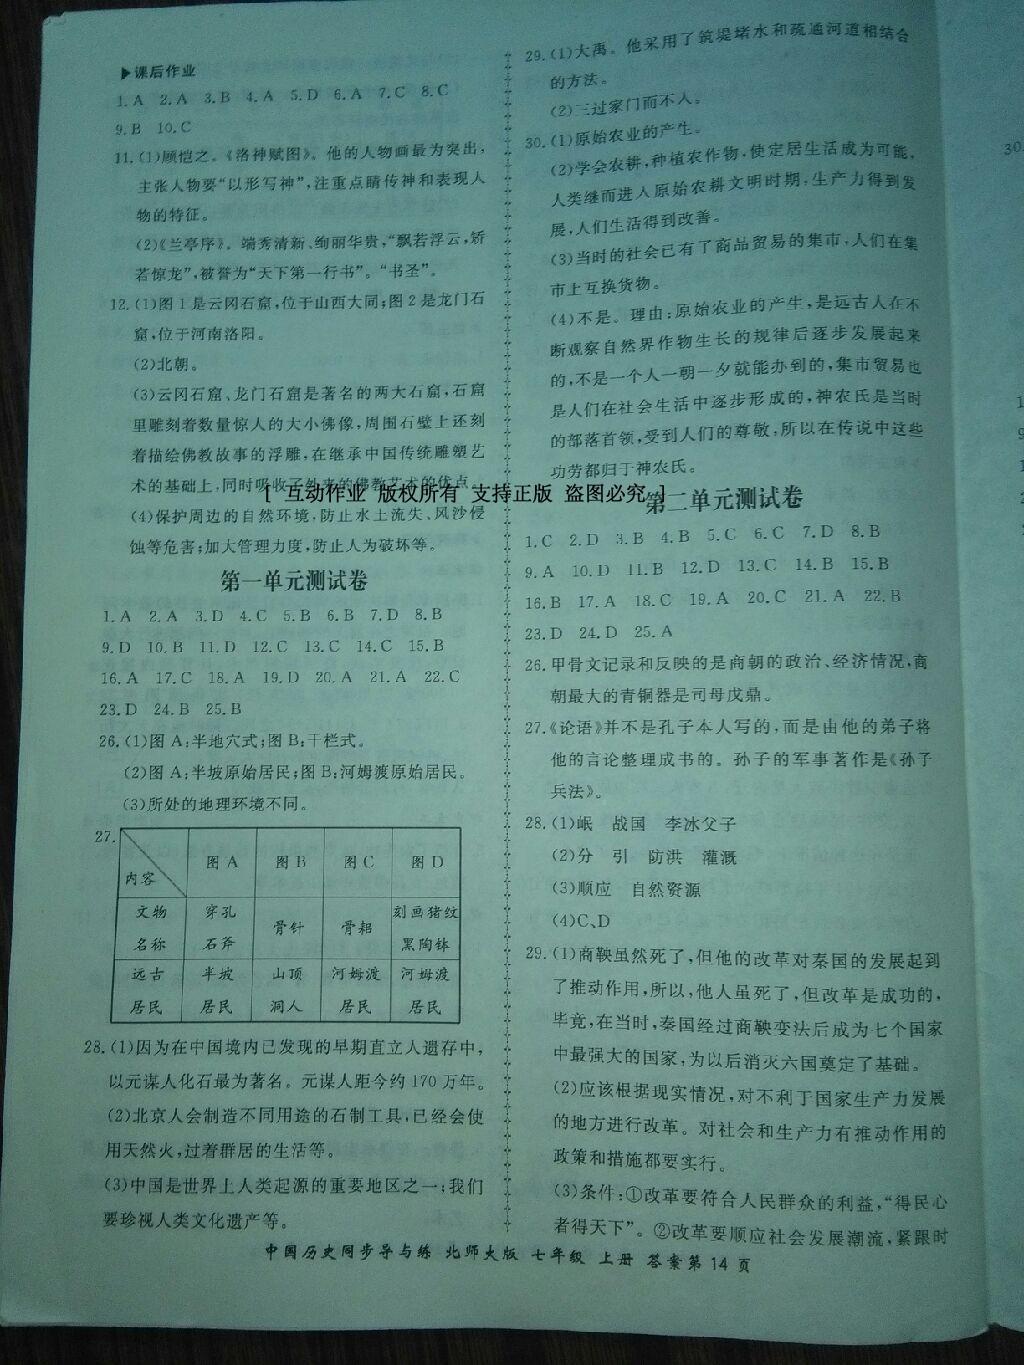 ▶课后作业
1. A 2. A 3. B 4. A 5. D 6. A 7. C 8. C
9. B 10. C
11. (1)顾恺之。《洛神赋图》。他的人物画最为突出,
主张人物要“以形写神”,注重点睛传神和表现人
物的特征。
(2)《兰亭序》。端秀清新、绚丽华贵,“飘若浮云,矫
若惊龙”,被誉为“天下第一行书”。“书圣”。
12. (1)图1是云冈石窟,位于山西大同;图2是龙门石
窟,位于河南洛阳。
(2)北朝。
(3)云冈石窟、龙门石窟是著名的两大石窟,石窟
里雕刻着数量惊人的大小佛像,周围石壁上还刻
着描绘佛教故事的浮雕,在继承中国传统雕塑艺
术的基础上,同时吸收了外来的佛教艺术的优点。
[ 互动作业 版权所有 支持正版 盗图必究 ]
(4)保护周边的自然环境,防止水土流失、风沙侵
蚀等危害;加大管理力度,防止人为破坏等。
第一单元测试卷
1. A 2. A 3. D 4. C 5. B 6. B 7. D 8. B
9. D 10. B 11. D 12. C 13. C 14. C 15. B
16. A 17. C 18. A 19. D 20. A 21. A 22. C
23. D 24. B 25. B
26. (1)图A:半地穴式;图B:干栏式。
(2)图A:半坡原始居民;图B:河姆渡原始居民。
(3)所处的地理环境不同。
27.
内容 图A 图B 图C 图D
文物名称 穿孔石斧 骨针 骨耜 刻画猪纹黑陶钵
远古居民 半坡居民 山顶洞人 河姆渡居民 河姆渡居民
28. (1)因为在中国境内已发现的早期直立人遗存中,
以元谋人化石最为著名。元谋人距今约170万年。
(2)北京人会制造不同用途的石制工具,已经会使
用天然火,过着群居的生活等。
(3)中国是世界上人类起源的重要地区之一;我们
要珍视人类文化遗产等。
29. (1)大禹。他采用了筑堤堵水和疏通河道相结合
的方法。
(2)三过家门而不入。
30. (1)原始农业的产生。
(2)学会农耕,种植农作物,使定居生活成为可能,
人类继而进入原始农耕文明时期,生产力得到发
展,人们生活得到改善。
(3)当时的社会已有了商品贸易的集市,人们在集
市上互换货物。
(4)不是。理由:原始农业的产生,是远古人在不
断观察自然界作物生长的规律后逐步发展起来
的,不是一个人一朝一夕就能办到的,集市贸易也
是人们在社会生活中逐步形成的,神农氏是当时
的部落首领,受到人们的尊敬,所以在传说中这些
功劳都归于神农氏。
第二单元测试卷
1. C 2. D 3. B 4. B 5. C 6. C 7. D 8. B
9. A 10. D 11. B 12. D 13. C 14. B 15. B
16. B 17. A 18. C 19. A 20. C 21. A 22. B
23. D 24. D 25. A
26. 甲骨文记录和反映的是商朝的政治、经济情况,商
朝最大的青铜器是司母戊鼎。
27. 《论语》并不是孔子本人写的,而是由他的弟子将
他的言论整理成书的。孙子的军事著作是《孙子
兵法》。
28. (1)岷 战国 李冰父子
(2)分 引 防洪 灌溉
(3)顺应 自然资源
(4)C、D
29. (1)商鞅虽然死了,但他的改革对秦国的发展起到
了推动作用,所以,他人虽死了,但改革是成功的,
毕竟,在当时,秦国经过商鞅变法后成为七个国家
中最强大的国家,为以后消灭六国奠定了基础。
(2)应该根据现实情况,对不利于国家生产力发展
的地方进行改革。对社会和生产力有推动作用的
政策和措施都要实行。
(3)条件:①改革要符合人民群众的利益,“得民心
者得天下”。②改革要顺应社会发展潮流,紧跟时
中国历史同步导与练 北师大版 七年级 上册 答案第14页
30.